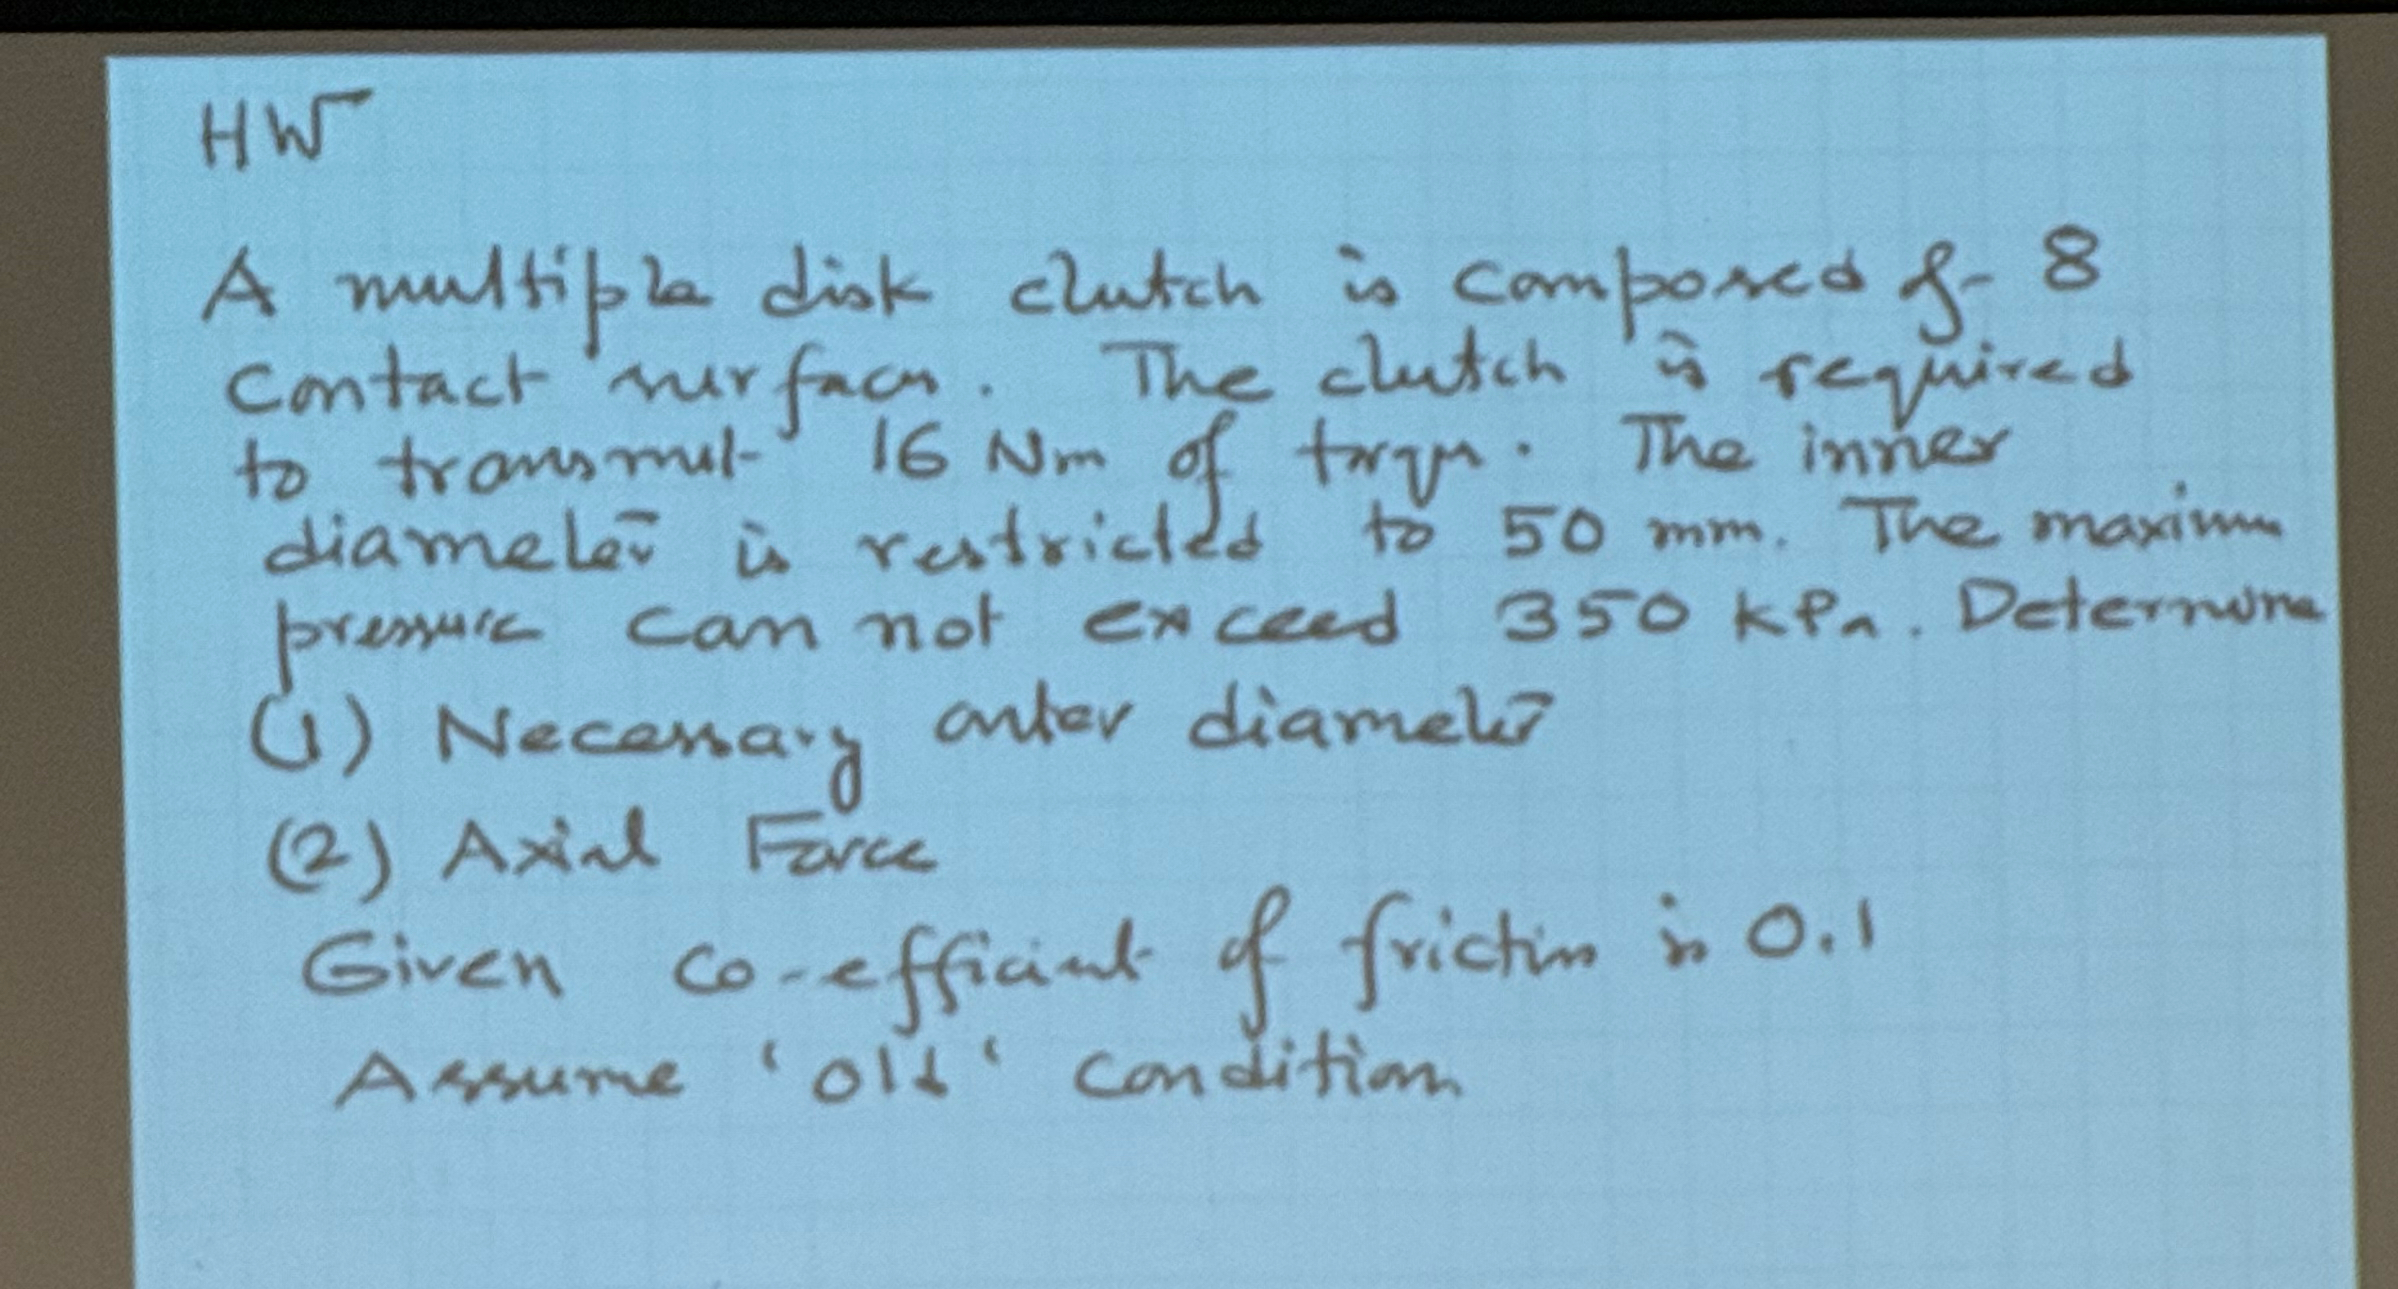 HW
A multiple disk clutch is composed of 8
contact surfaces. The clutch is required
to transmit 16 Nm of torque. The inner
diameter is restricted to 50 mm. The maximum
pressure can not exceed 350 kPa. Determine
(1) Necessary outer diameter
(2) Axial Force
Given co-efficient of friction is 0.1
Assume 'old' condition